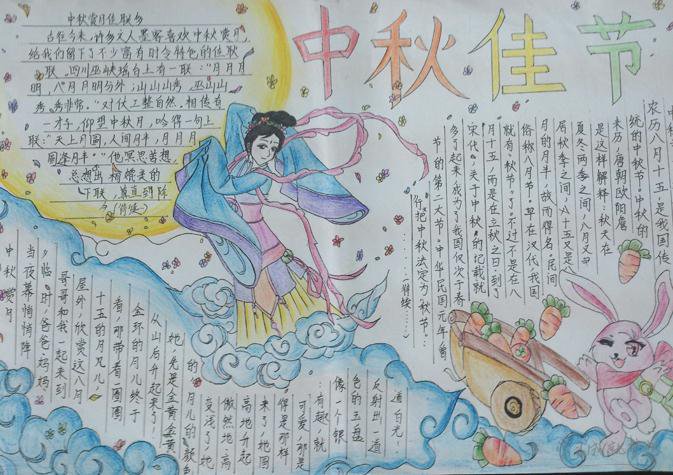 中秋佳节
中秋赏月佳联多
古往今来,许多文人墨客喜欢中秋赏月
给我们留下了不少富有时令特色的佳联
联。四川巫峡瑶台上有一联:“月月月
明,八月月明分外;山山山秀,巫山山
秀秀非常。”对仗工整自然。相传有
一才子,仰望中秋月,吟得一句上
联:“天上月圆,人间月半,月月月
圆逢月半。”他冥思苦想,
农历八月十五是我国传
统的中秋节。中秋的
来历,唐朝欧阳詹
是这样解释:秋天在
夏冬两季之间,八月又中
居秋季之间,八十五又是八
月的月半,故而得名。民间
俗称八月节。早在汉代,我国
就有“秋节”了,不过不是在八
月十五,而是在立秋之日。到了
宋代,关于中秋的记载就
多了起来。我为了我国仅次于春
节的第二大节。中华民国元年
作把中秋法定为秋节…
中秋赏月
当夜幕悄悄降
临时,爸爸妈妈
哥哥和我一起来到
屋外,欣赏这八月
十五的月儿。
看,那带着一圈圈
金环的月儿终于
从山后升起来了
她先是金黄金黄
的,月儿的颜色
变浅了,她
傲然地高
高地升起
来了。她圆
得是那样
可爱,那是
有趣,就
像一个银
色的玉盘
反射出一道
道白光。